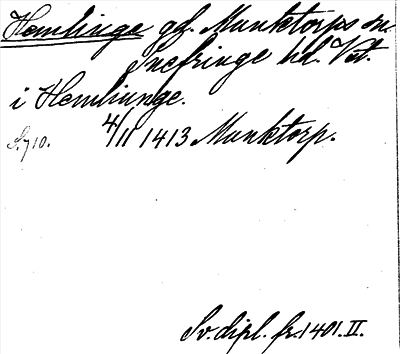 Hemlinge gd. Munktorps sn.
Snefringe hd. Vst.
i Hemliunge.
S. 710. 4/11 1413 Munktorp.
Sv. dipl. fr. 1401. II.